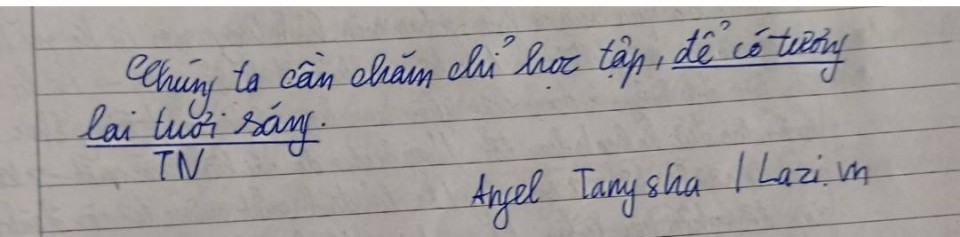 Chúng ta cần chăm chỉ học tập, để có tương
lai tươi sáng.
TN
Angel Tanysha / Lazi.vn